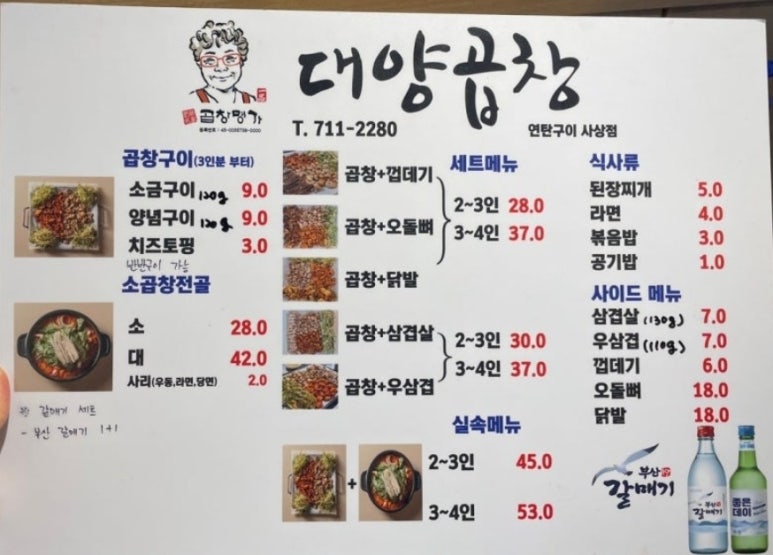 대양곱창
곱창명가
T. 711-2280
연탄구이 사상점
곱창구이(3인분 부터)
소금구이 120g 9.0
양념구이 120g 9.0
치즈토핑 3.0
반반구이 가능
소곱창전골
소 28.0
대 42.0
사리(우동,라면,당면) 2.0
※ 갈매기 세트
- 부산 갈매기 1+1
세트메뉴
곱창+껍데기
곱창+오돌뼈
곱창+닭발
2~3인 28.0
3~4인 37.0
곱창+삼겹살
곱창+우삼겹
2~3인 30.0
3~4인 37.0
실속메뉴
+
2~3인 45.0
3~4인 53.0
식사류
된장찌개 5.0
라면 4.0
볶음밥 3.0
공기밥 1.0
사이드 메뉴
삼겹살 (130g) 7.0
우삼겹 (110g) 7.0
껍데기 6.0
오돌뼈 18.0
닭발 18.0
부산
갈매기
부산
갈매기
좋은
데이